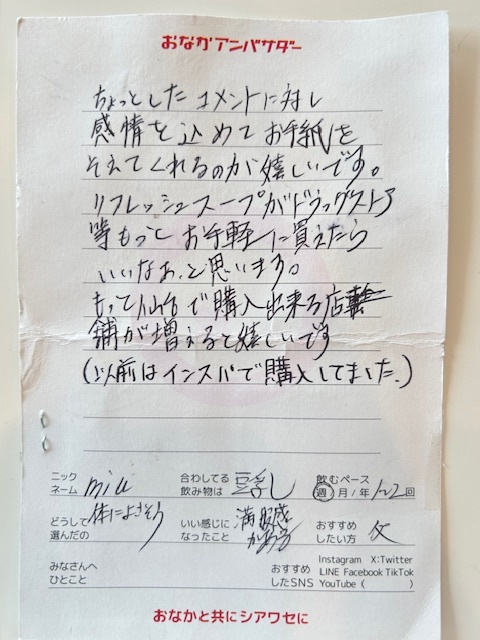 おなかアンバサダー
ちょっとしたコメントに対し
感情を込めてお手紙を
そえてくれるのが嬉しいです。
リフレッシュスープがドラッグストア
等もっとお手軽に買えたら
いいなぁ、と思います。
もって仙台で購入出来る店
舗が増えると嬉しいです
(以前はインスパで購入してました。)
ニックネーム miu 合わしてる飲み物は 豆乳 飲むペース 週/月/年 1~2回
どうして選んだの 体によさそう いい感じになったこと 満腹感がある おすすめしたい方 父
みなさんへひとこと おすすめしたSNS Instagram X:Twitter LINE Facebook TikTok YouTube ( )
おなかと共にシアワセに